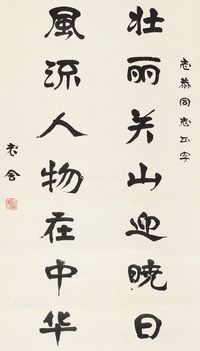 志恭同志正字
壮丽关山迎晓日
风流人物在中华
老舍